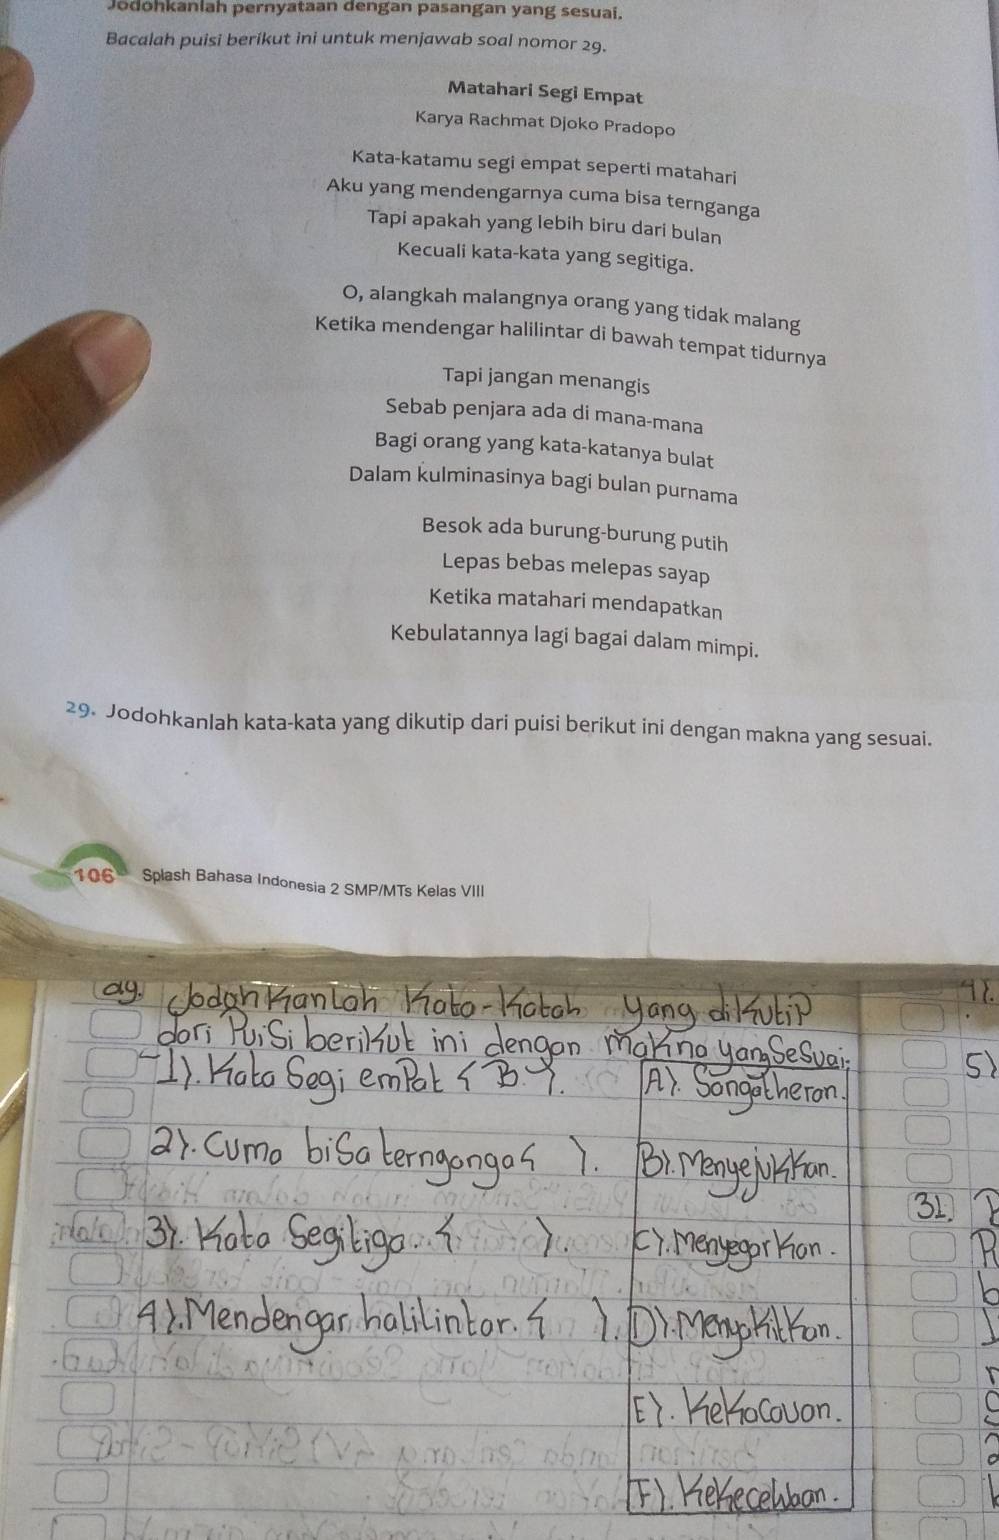 Jodohkanlah pernyataan dengan pasangan yang sesuai.
Bacalah puisi berikut ini untuk menjawab soal nomor 29.
Matahari Segi Empat
Karya Rachmat Djoko Pradopo
Kata-katamu segi empat seperti matahari
Aku yang mendengarnya cuma bisa ternganga
Tapi apakah yang lebih biru dari bulan
Kecuali kata-kata yang segitiga.
O, alangkah malangnya orang yang tidak malang
Ketika mendengar halilintar di bawah tempat tidurnya
Tapi jangan menangis
Sebab penjara ada di mana-mana
Bagi orang yang kata-katanya bulat
Dalam kulminasinya bagi bulan purnama
Besok ada burung-burung putih
Lepas bebas melepas sayap
Ketika matahari mendapatkan
Kebulatannya lagi bagai dalam mimpi.
29. Jodohkanlah kata-kata yang dikutip dari puisi berikut ini dengan makna yang sesuai.
106 Splash Bahasa Indonesia 2 SMP/MTs Kelas VIII
29. Jodohkanlah Kata-Katah yang diKutiP
dari PuiSi beriKut ini dengan maKna yang SeSuai.
1). Kata Segi emPat (B). A). Sangatheran.
2). Cuma biSa ternganga ( ). B). MenyejuKKan.
3). Kata Segitiga. ( ). C). MenyegarKan.
4). Mendengar halilintar. ( ). D). MenyaKitKan.
E). KeKacauan.
F). KeKecewaan.
31.
5)